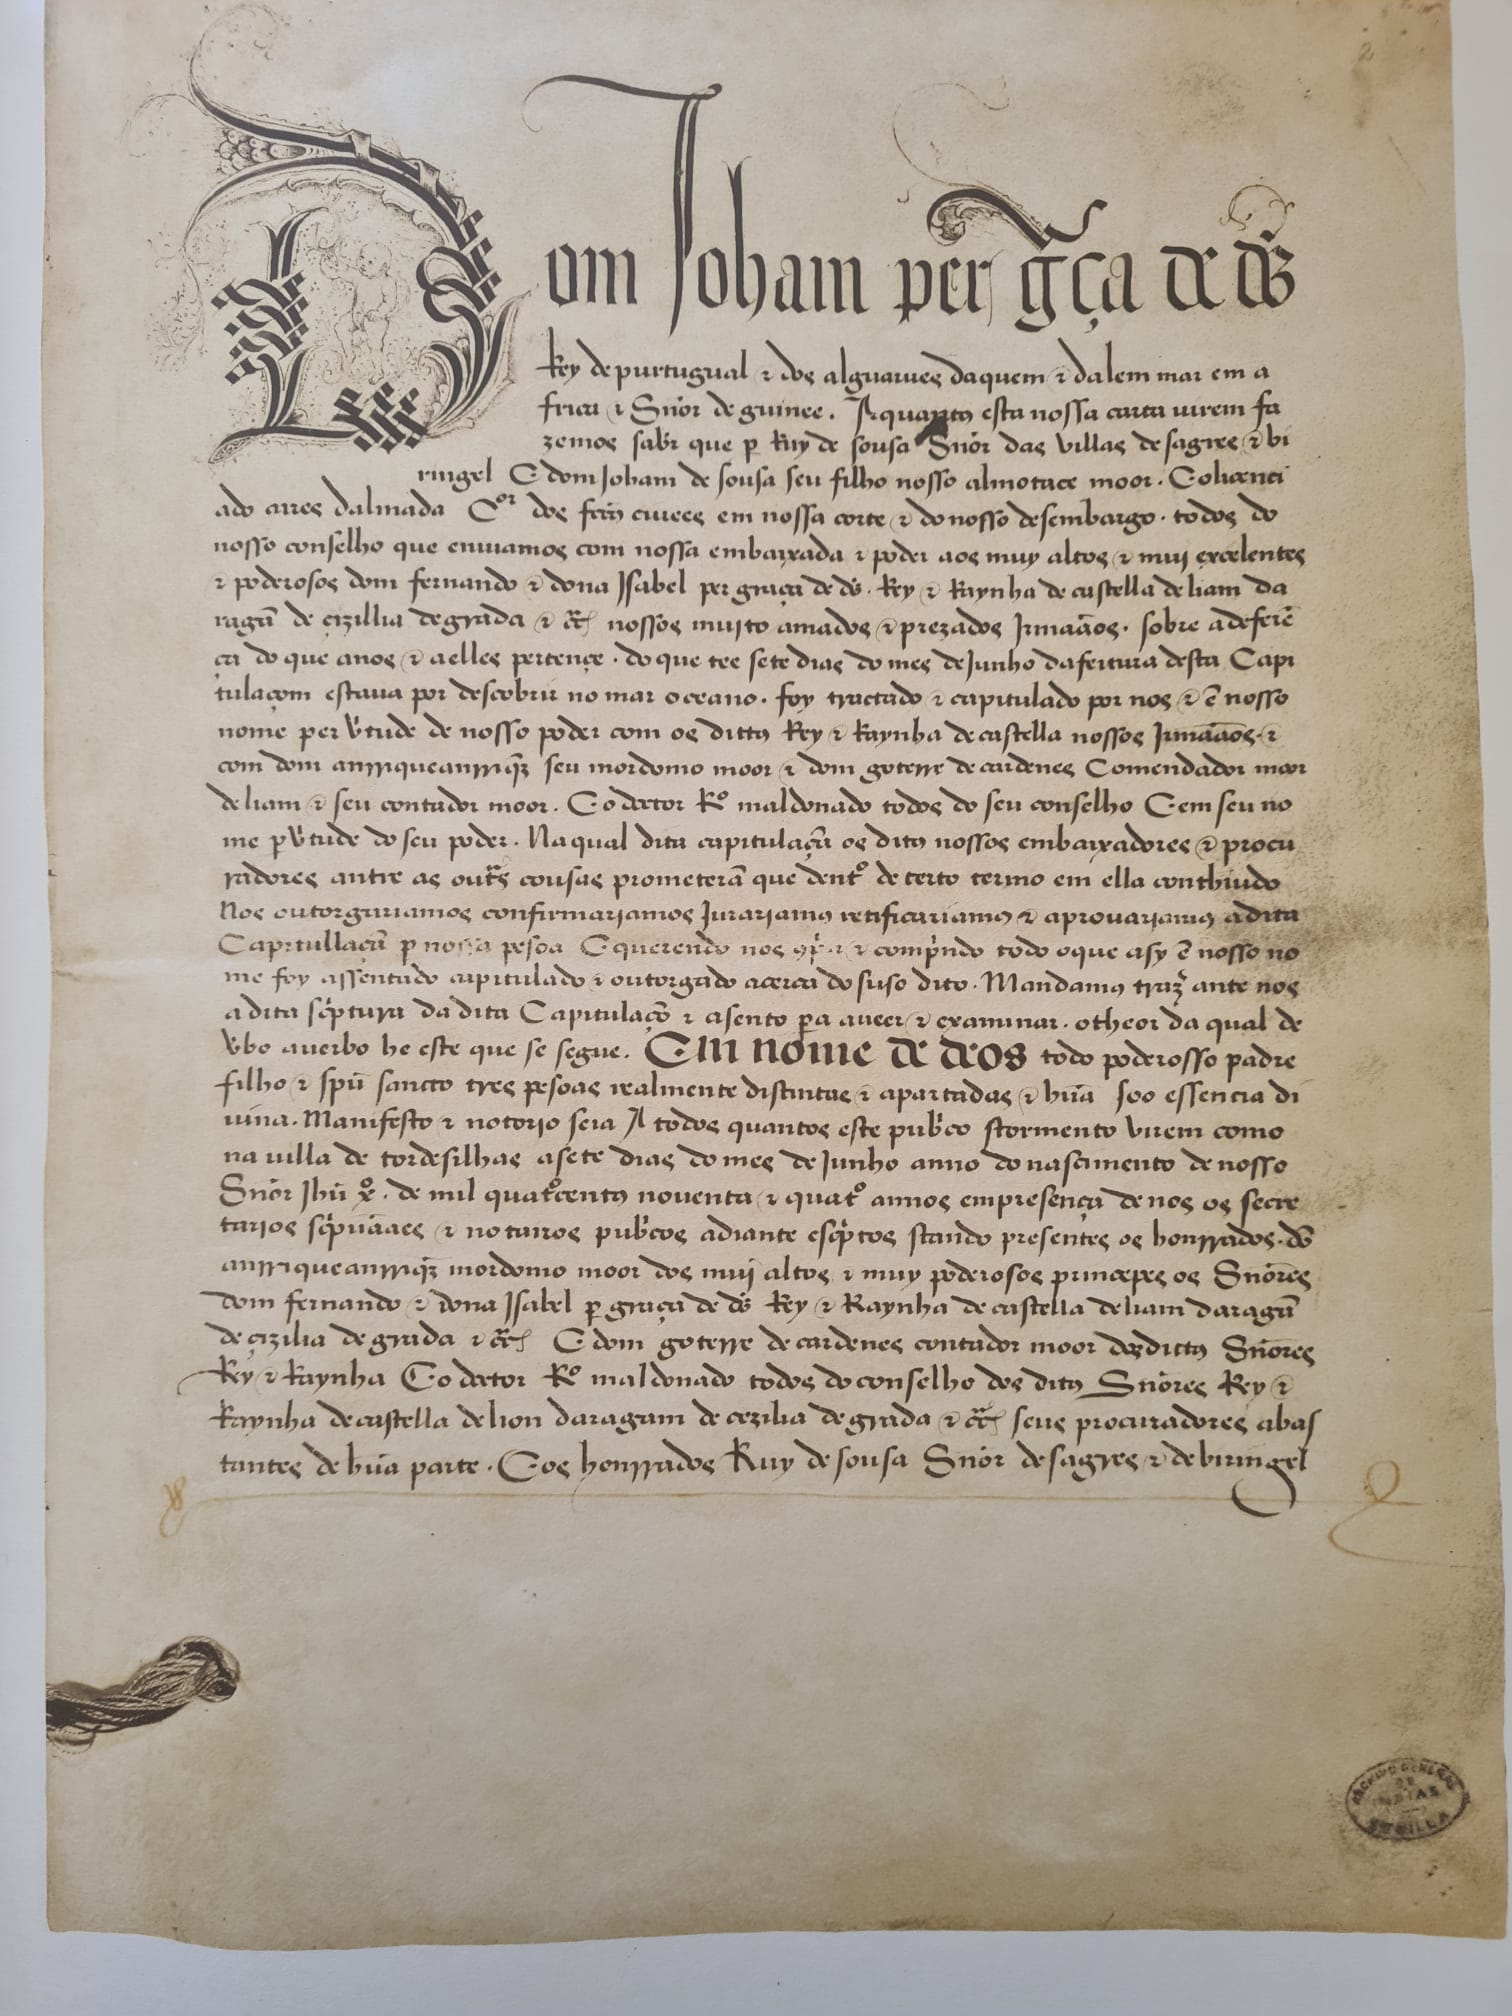 2
Dom Joham per gr̃ça de ds̃
Rey de purtugual ⁊ dos alguarues daquem ⁊ dalem mar em a
frica ⁊ Sñor de guinee. A quantos esta nossa carta virem fa
zemos saber que per Ruy de sousa Sñor das villas de sagres ⁊ bi
ringel E dom Joham de sousa seu filho nosso almotace moor. E o licenci
ado aires dalmada Cor dos feitos ciuees em nossa corte ⁊ do nosso desembargo. todos do
nosso conselho que enuiamos com nossa embaixada ⁊ poder aos muy altos ⁊ muj eixcelentes
⁊ poderosos dom fernando ⁊ dona Isabel per graça de ds̃. Rey ⁊ Raynha de castella de liam da
ragã de çizillia de grada ⁊ cr̃ nossos muito amados ⁊ prezados Jrmaãos. sobre a deferẽ
ça do que a nos ⁊ a elles pertençe. do que tee sete dias do mes de Junho da feitura desta Capi
tulaçom estaua por descobrir no mar oceano. foy tractado ⁊ capitulado por nos ⁊ ẽ nosso
nome per vtude de nosso poder com os dittos Rey ⁊ Raynha de castella nossos Jrmaãos ⁊
com dom anrrique anrriqz̃ seu mordomo moor ⁊ dom goterre de cardenes Comendador moor
de liam ⁊ seu contador moor. E o doctor Ro maldonado todos do seu conselho E em seu no
me p vtude do seu poder. Na qual dita capitulaçã os ditos nossos embaixadores ⁊ procu
radores antre as outrs̃ cousas prometerã que dento de certo termo em ella conthiudo
Nos outorgariamos confirmariamos Jurariamos retificariamos ⁊ aprouariamos a dita
Capitullaçã p nossa pesoa E querendo nos ⁊ comprindo todo o que asy ẽ nosso no
me foy assentado capitulado ⁊ outorgado acerca do suso dito. Mandamos trazr̃ ante nos
a dita scptura da dita Capitulaçõ ⁊ asento pa a veer ⁊ examinar. o theor da qual de
vbo a verbo he este que se segue. Em nome de deos todo poderosso padre
filho ⁊ spũ sancto tres pesoas realmente distintas ⁊ apartadas ⁊ hũa soo essencia di
uina. Manifesto ⁊ notorio seia A todos quantos este pubco stormento virem como
na villa de tordesilhas a sete dias do mes de Junho anno do nascimento de nosso
Sñor Jhũ xo. de mil quatocentos nouenta ⁊ quato annos em presença de nos os secre
tarios scpuãaes ⁊ notairos pubcos adiante escptos stando presentes os honrrados. dõ
anrrique anrriqz̃ mordomo moor dos muj altos ⁊ muy poderosos princepes os Sñores
dom fernando ⁊ dona Isabel p graça de ds̃ Rey ⁊ Raynha de castella de liam daragã
de çizilia de grada ⁊ cr̃ E dom goterre de cardenes contador moor dos dittos Sñores
Rey ⁊ Raynha E o doctor Ro maldonado todos do conselho dos ditos Sñores Rey ⁊
Raynha de castella de lion daragam de cezilia de grada ⁊ cr̃ seus procuradores abas
tantes de hũa parte. E os honrrados Ruy de sousa Sñor de sagres ⁊ de biringel
ARCHIVO GENERAL
DE
INDIAS
SEVILLA